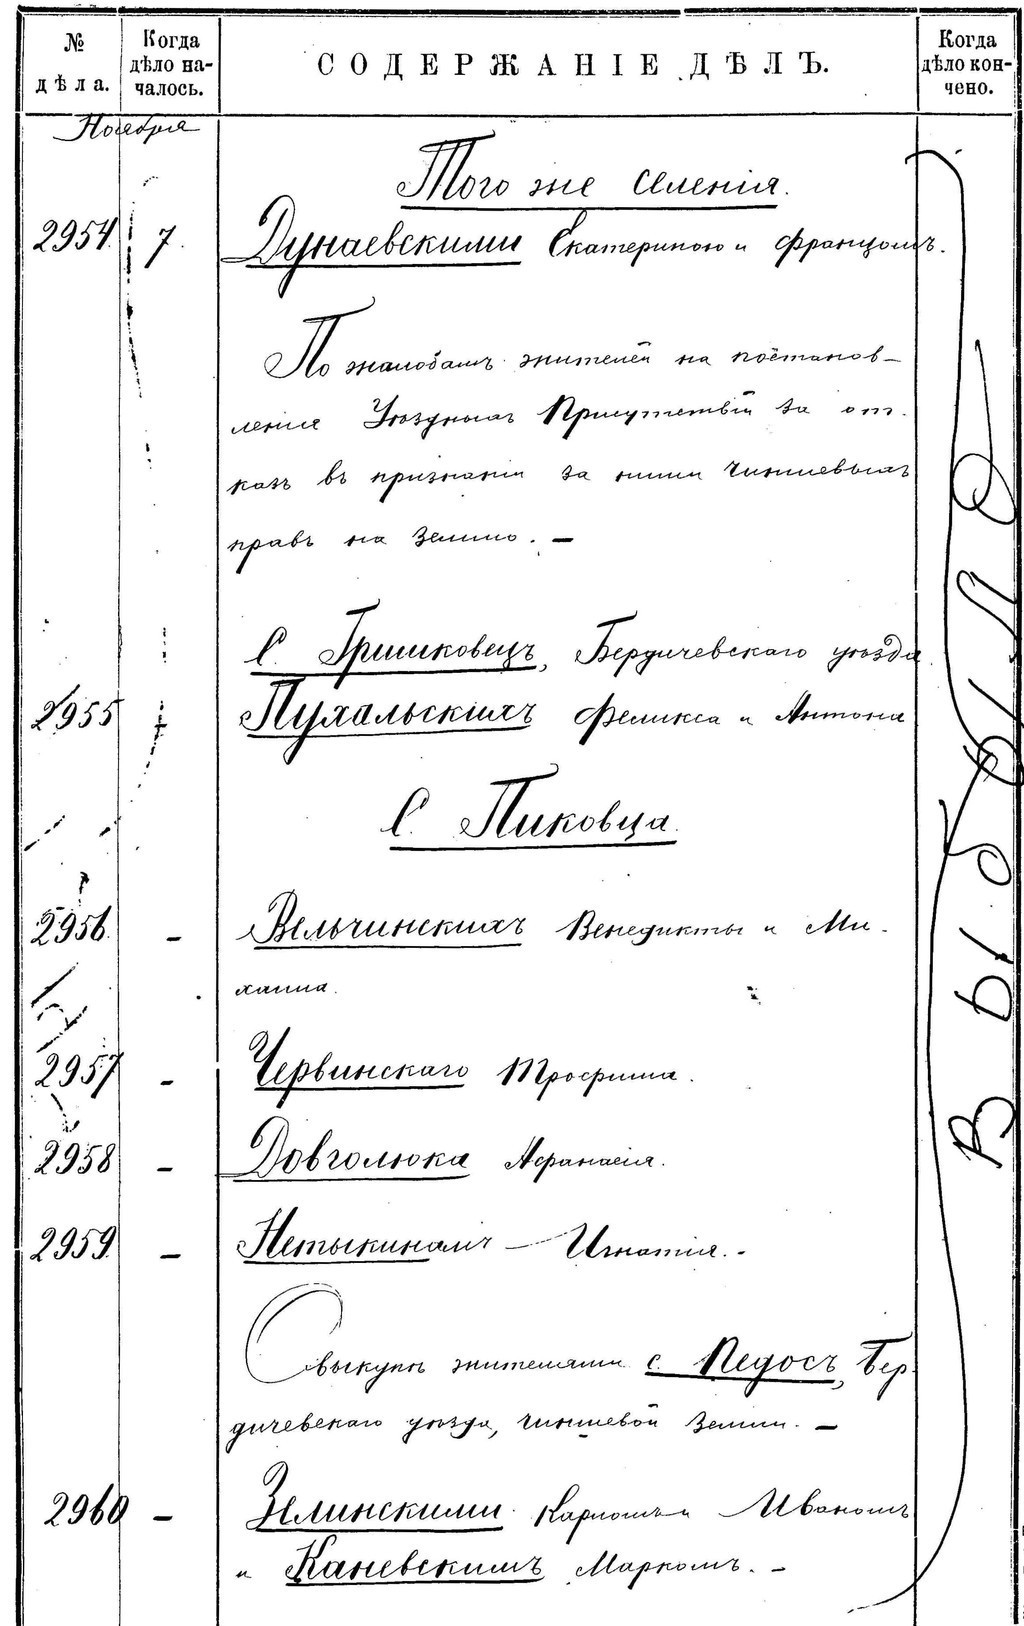 № дѣла.
Когда дѣло началось.
СОДЕРЖАНІЕ ДѢЛЪ.
Когда дѣло кончено.
Ноября
Того же селенія.
2954. 7. Дунаевскими Екатериною и Францомъ.
По жалобамъ жителей на постанов-
ленія Уѣздныхъ Присутствій за от-
казъ въ признаніи за ними чиншевыхъ
правъ на землю. —
С. Гришковецъ, Бердичевскаго уѣзда
2955 Пухальскихъ Феликса и Антона
С. Пиковца.
2956. - Вельчинскихъ Венедикты и Ми-
хаила.
2957 - Червинскаго Трофима.
2958 - Довголюка Афанасія.
2959. - Нетыкинамъ — Игнатія. -
О выкупѣ жителями с. Педосъ, Бер-
дичевскаго уѣзда, чиншевой земли. —
2960 - Зелинскими Карломъ и Иваномъ
и Каневскимъ Маркомъ. -